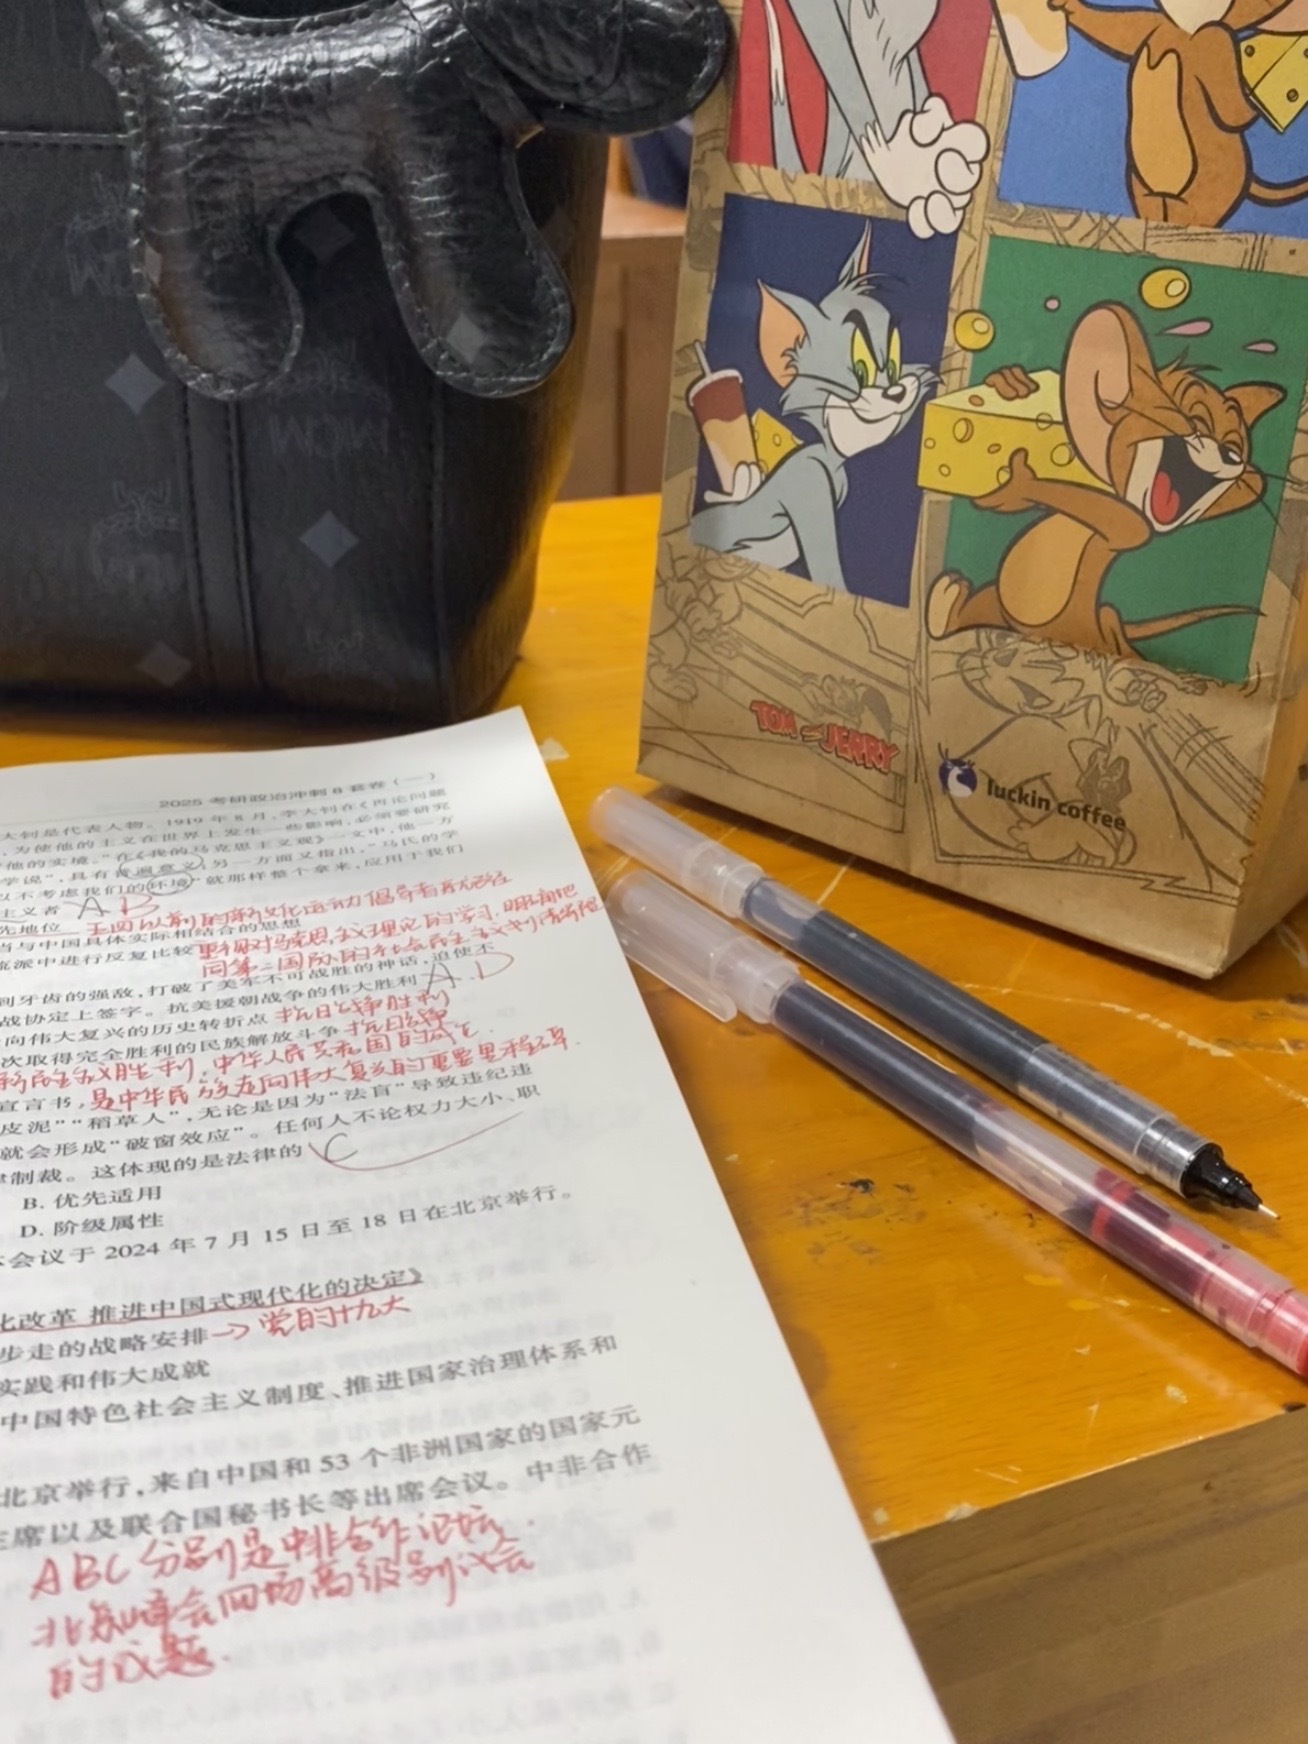 MCM
MCM
TOM and JERRY
luckin coffee
2025 考研政治冲刺8套卷(一)
大钊是代表人物。1919 年 8 月,李大钊在《再论问题
,为使他的主义在世界上发生一些影响,必须要研究
他的实境。”在《我的马克思主义观》一文中,他一方
学说”,具有普遍意义,另一方面又指出,“马氏的学
以不考虑我们的环境”就那样整个拿来,应用于我们
主义者 A B
先地位 五四以前的新文化运动倡导者
当与中国具体实际相结合的思想
流派中进行反复比较
同第二国际的社会民主主义划清界限
到牙齿的强敌,打破了美军不可战胜的神话,迫使不
战协定上签字。抗美援朝战争的伟大胜利 A.D
向伟大复兴的历史转折点 抗日战争胜利
次取得完全胜利的民族解放斗争 抗日战争
新民主主义胜利,中华人民共和国的成立.
宣言书,是中华民族走向伟大复兴的重要里程碑.
皮泥”“稻草人”,无论是因为“法盲”导致违纪违
就会形成“破窗效应”。任何人不论权力大小、职
律制裁。这体现的是法律的 C
B. 优先适用
D. 阶级属性
会议于 2024 年 7 月 15 日至 18 日在北京举行。
化改革 推进中国式现代化的决定》
步走的战略安排→党的十九大
实践和伟大成就
中国特色社会主义制度、推进国家治理体系和
北京举行,来自中国和 53 个非洲国家的国家元
主席以及联合国秘书长等出席会议。中非合作
ABC 分别是中非合作论坛.
北京峰会四场高级别议会
的议题.